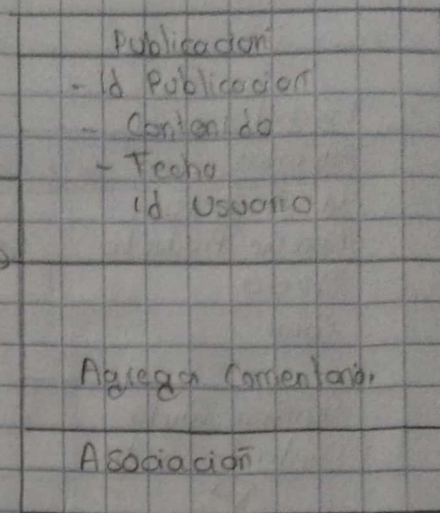 Publicacion
- Id Publicacion
- Contenido
- Fecha
id Usuario
Agregar Comentario.
Asociación